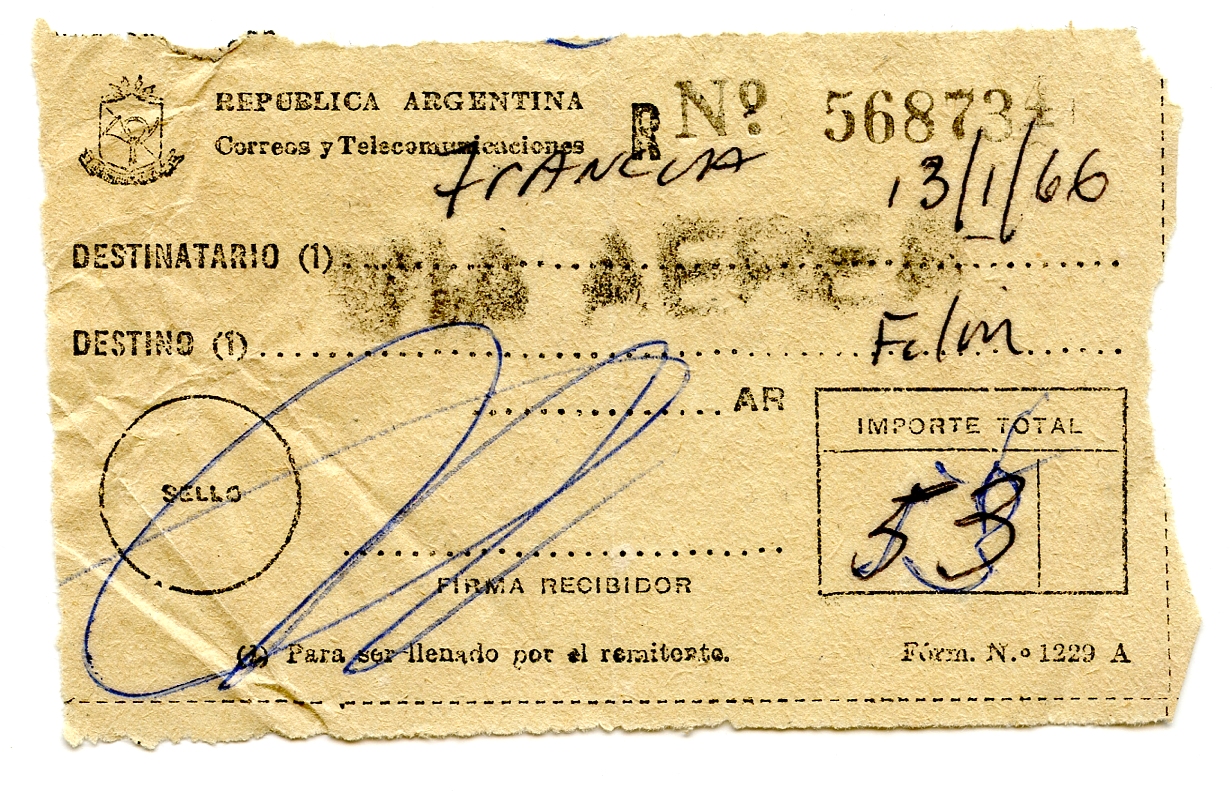 REPÚBLICA ARGENTINA
Correos y Telecomunicaciones
R Nº 568734
FRANCIA 13/1/66
DESTINATARIO (1)
VIA AEREA
DESTINO (1)
AR
IMPORTE TOTAL
SELLO
53
FIRMA RECIBIDOR
(1) Para ser llenado por el remitente.
Fórm. N.º 1229 A